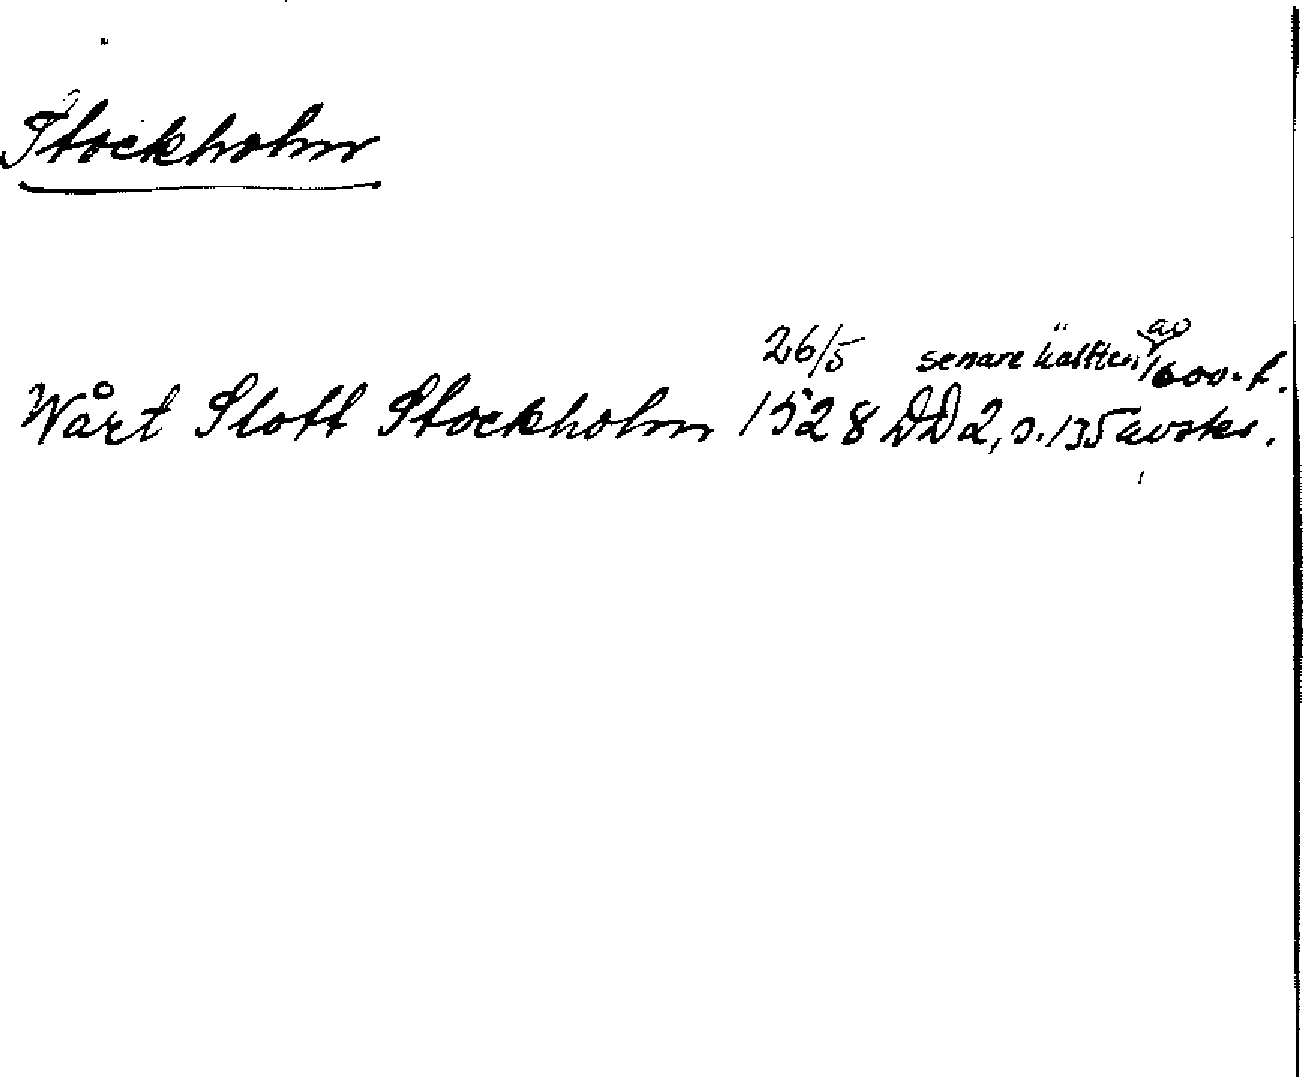 Stockholm
26/5 senare hälften av 1600-t.
Wårt Slott Stockholm 1528 DD2, s. 135 avskr.